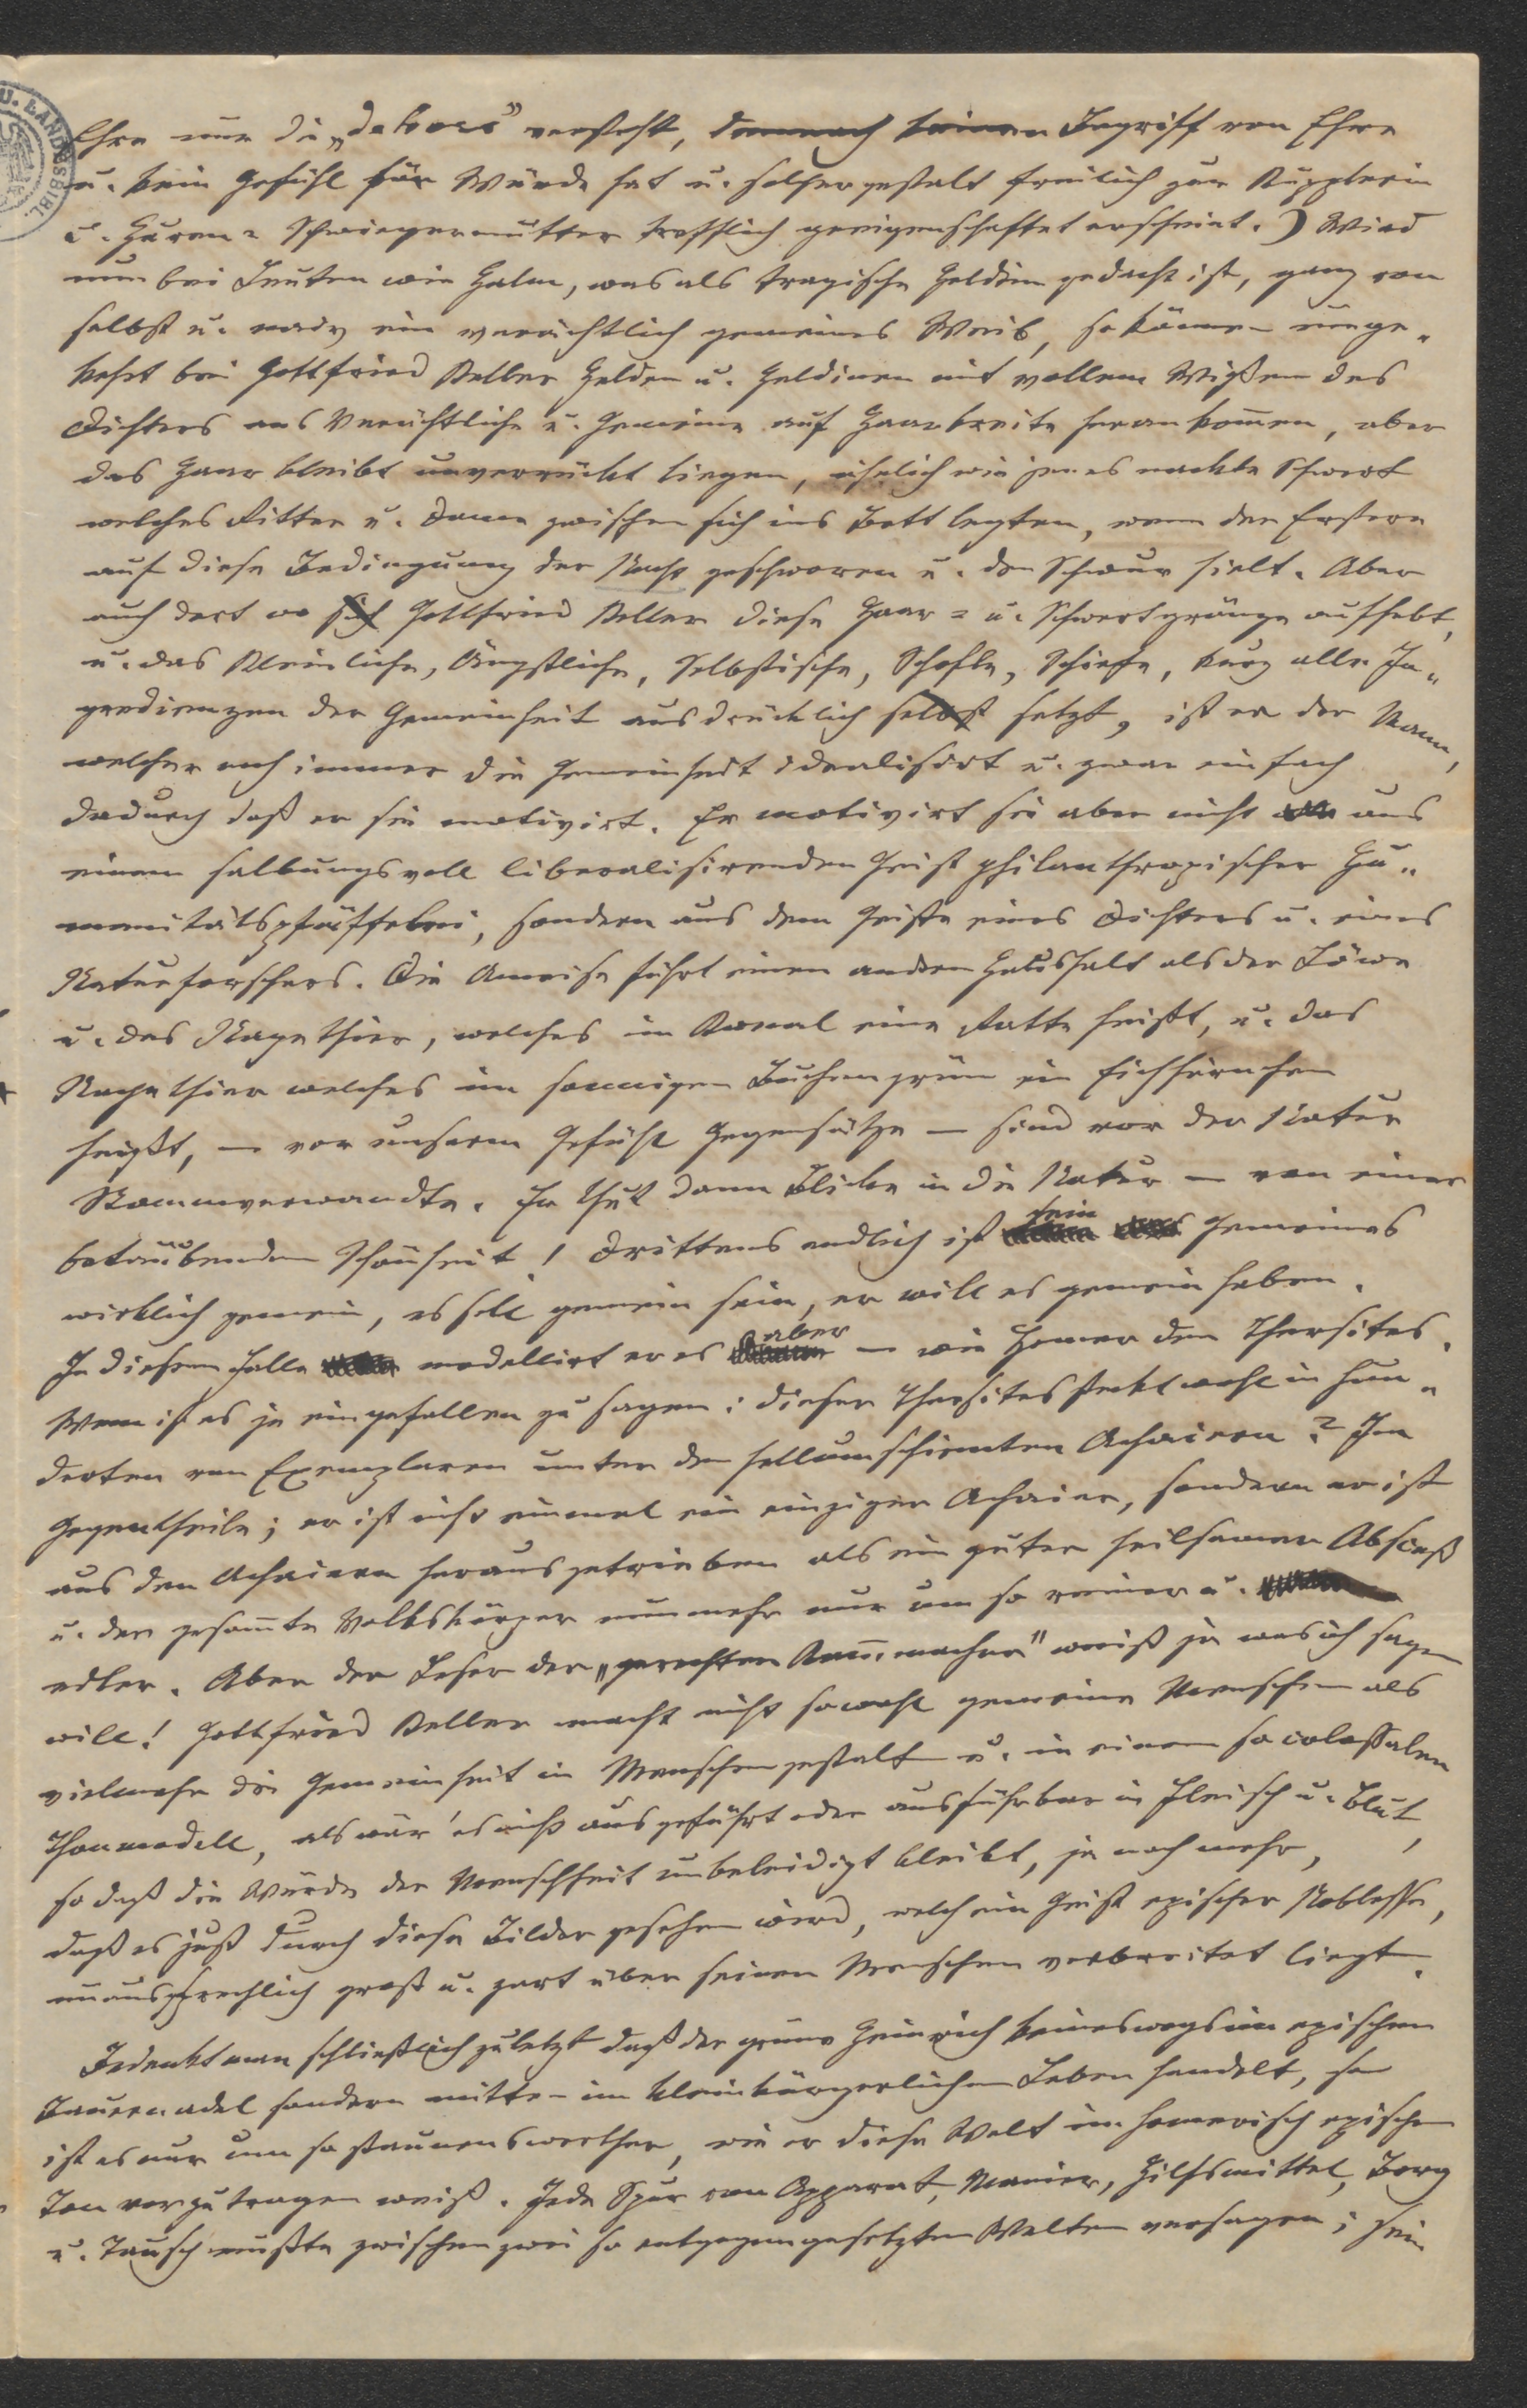 U. LANDESBIBL.
Ehre nur die „dehors" versteht, demnach keinen Begriff von Ehre
u. kein Gefühl für Würde hat u. solchergestalt freilich zur Kupplerin
u. Huren-Schwiegermutter trefflich geeigenschaftet erscheint.) Wird
nun bei Leuten wie Halm, was als tragische Heldin gedacht ist, ganz von
selbst u. naiv ein verächtlich gemeines Weib, so können umge-
kehrt bei Gottfried Keller Helden u. Heldinen mit vollem Wißen des
Dichters ans Verächtliche u. Gemeine auf Haarbreite herankom̄en, aber
das Haar bleibt unverrückt liegen, ähnlich wie jenes nackte Schwert
welches Ritter u. Dame zwischen sich ins Bett legten, wenn der Erstere
auf diese Bedingung der Nacht geschworen u. den Schwur hielt. Aber
auch dort wo sich Gottfried Keller diese Haar- u. Schwertgränze aufhebt,
u. das Kleinliche, Ängstliche, Selbstische, Schofle, Schiefe, kurz alle In-
gredienzen der Gemeinheit ausdrücklich selbst setzt, ist er der Mann,
welcher noch immer die Gemeinheit idealisirt u. zwar einfach
dadurch daß er sie motivirt. Er motivirt sie aber nicht aus
einem salbungsvoll liberalisirenden Geist philanthropischer Hu-
manitätspfäffelei, sondern aus dem Geiste eines Dichters u. eines
Naturforschers. Die Ameise führt einen andern Haushalt als der Löwe
u. das Nagethier, welches im Kanal eine Ratte heißt, u. das
Nagethier welches im sonnigen Buchengrün ein Eichhörnchen
heißt, — vor unserm Gefühl Gegensätze — sind vor der Natur
Stammverwandte. Er thut dann Blicke in die Natur — von einer
betäubenden Schönheit! Drittens endlich ist sein Gemeines
wirklich gemein, es soll gemein sein, er will es gemein haben.
In diesem Falle modellirt er es aber — wie Homer den Thersites.
Wem ist es je eingefallen zu sagen: dieser Thersites steckt wohl in hun-
derten von Exemplaren unter den hellumschienten Achaiern? Im
Gegentheile; er ist nicht einmal ein einziger Achaier, sondern er ist
aus den Achaiern herausgetrieben als ein guter heilsamer Absceß
u. der gesam̄te Volkskörper nunmehr nur um so reiner u.
edler. Aber der Leser der „gerechten Kam̄macher" weiß ja was ich sagen
will! Gottfried Keller macht nicht sowohl gemeine Menschen als
vielmehr die Gemeinheit in Menschengestalt u. in einem so colossalen
Thonmodell, als wär' es nicht ausgeführt oder ausführbar in Fleisch u. Blut,
so daß die Würde der Menschheit unbeleidigt bleibt, ja noch mehr,
daß es just durch diese Bilder gesehen wird, welch ein Geist epischer Noblesse,
unaussprechlich groß u. zart über seinen Menschen verbreitet liegt.
Bedenkt man schließlich zuletzt daß der grüne Heinrich keineswegs im epischen
Bauernadel sondern mitten im kleinbürgerlichen Leben handelt, so
ist es nur um so staunenswerther, wie er diese Welt im homerisch epischen
Ton vorzutragen weiß. Jede Spur von Apparat, Manier, Hilfsmittel, Borg
u. Tausch mußte zwischen zwei so entgegengesetzten Welten versagen; sein